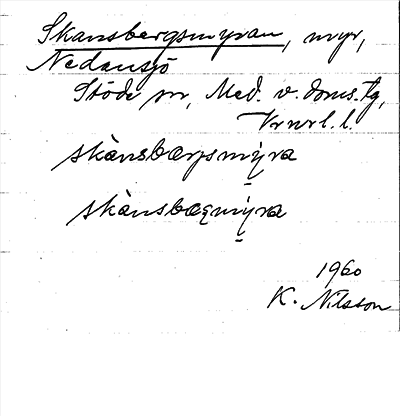 Skansbergsmyran, myr,
Nedansjö
Stöde sn, Med. v. doms. tg,
Vrnrl. l.
skànsbærsmyra
skànsbæmyra
1960
K. Nilsson